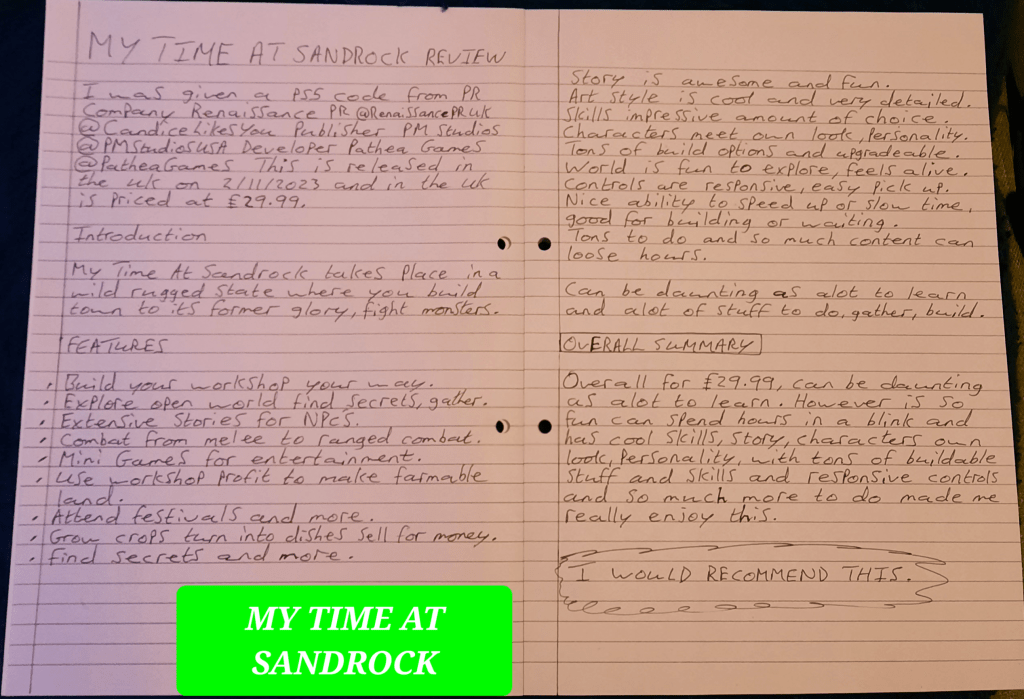 MY TIME AT SANDROCK REVIEW
I was given a PS5 code from PR
Company Renaissance PR @RenaissancePRUK
@CandiceLikesYou Publisher PM Studios
@PMStudiosUSA Developer Pathea Games
@PatheaGames This is released in
the UK on 2/11/2023 and in the UK
is priced at £29.99.
Introduction
My Time At Sandrock takes place in a
wild rugged state where you build
town to its former glory, fight monsters.
FEATURES
• Build your workshop your way.
• Explore open world find secrets, gather.
• Extensive Stories for NPCs.
• Combat from melee to ranged combat.
• Mini Games for entertainment.
• Use workshop profit to make farmable
land.
• Attend festivals and more.
• Grow crops turn into dishes sell for money.
• Find secrets and more.
Story is awesome and fun.
Art style is cool and very detailed.
Skills impressive amount of choice.
Characters meet own look, personality.
Tons of build options and upgradeable.
World is fun to explore, feels alive.
Controls are responsive, easy pick up.
Nice ability to speed up or slow time,
good for building or waiting.
Tons to do and so much content can
loose hours.
Can be daunting as alot to learn
and alot of stuff to do, gather, build.
OVERALL SUMMARY
Overall for £29.99, can be daunting
as alot to learn. However is so
fun can spend hours in a blink and
has cool skills, story, characters own
look, personality, with tons of buildable
stuff and skills and responsive controls
and so much more to do made me
really enjoy this.
I WOULD RECOMMEND THIS.
MY TIME AT
SANDROCK